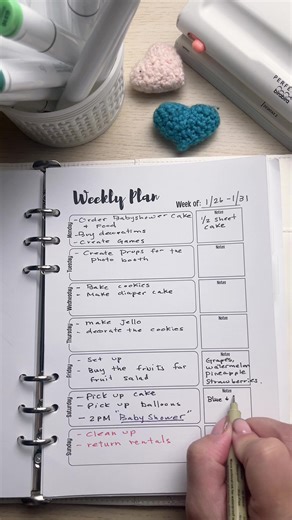 PERFE
Weekly Plan
Week of: 1/26 - 1/31
Monday
- Order Babyshower cake
& Food
- Buy decorations
- Create Games
Notes
1/2 sheet
cake
Tuesday
- Create Props for the
photo booth
Notes
Wednesday
- Bake cookies
- Make diaper cake
Notes
Thursday
- make Jello
- decorate the cookies
Notes
Friday
- Set up
- Buy the fruits for
fruit salad
Notes
Grapes,
Watermelon
Pineapple
Strawberries.
Saturday
- Pick up cake
- Pick up balloons
- 2PM "Baby Shower"
Notes
Blue +
Sunday
- Clean up
- return rentals